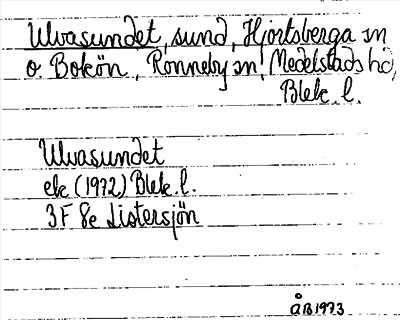 Ulvasundet, sund, Hjortsberga sn
o Bokön, Ronneby sn, Medelstads hd,
Blek. l.
Ulvasundet
ek (1972) Blek. l.
3F 8e Listersjön
ÅB 1973